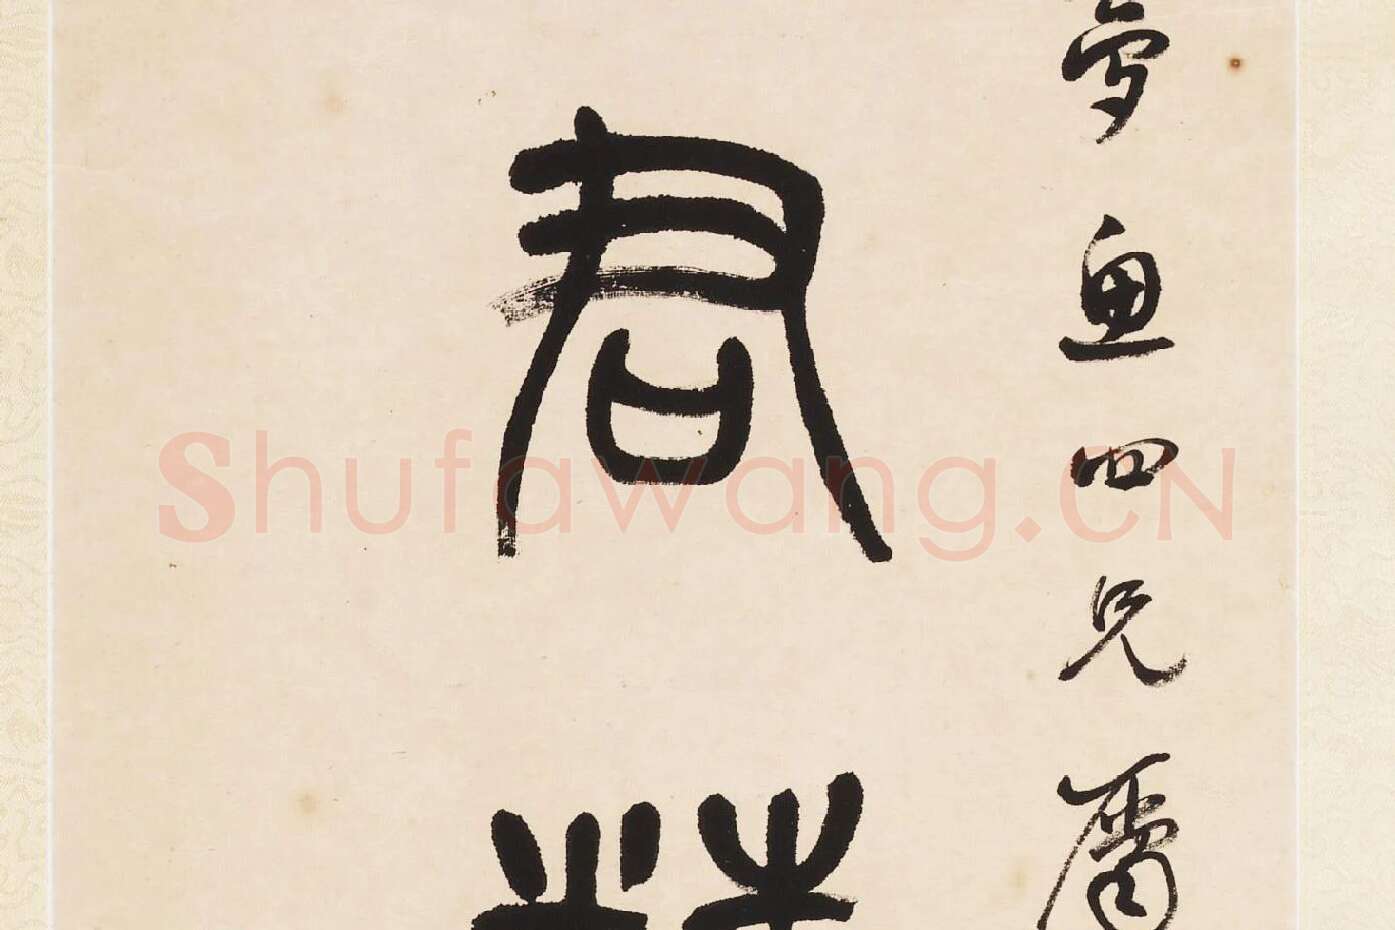 魚四兄屬
君
Shufawang.CN